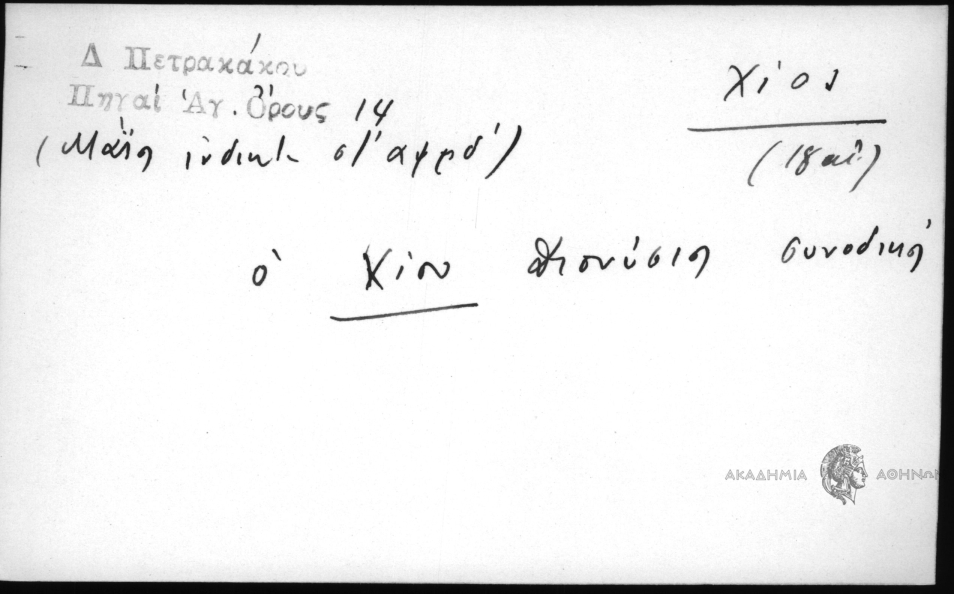 Δ Πετρακάκου
Πηγαί Ἁγ. Ὄρους 14
Χίος
(Μάϊος ἰνδικτ. στ' αψρδ')
(18 αἰ.)
ὁ Χίου Διονύσιος συνοδικός
ΑΚΑΔΗΜΙΑ ΑΘΗΝΩΝ